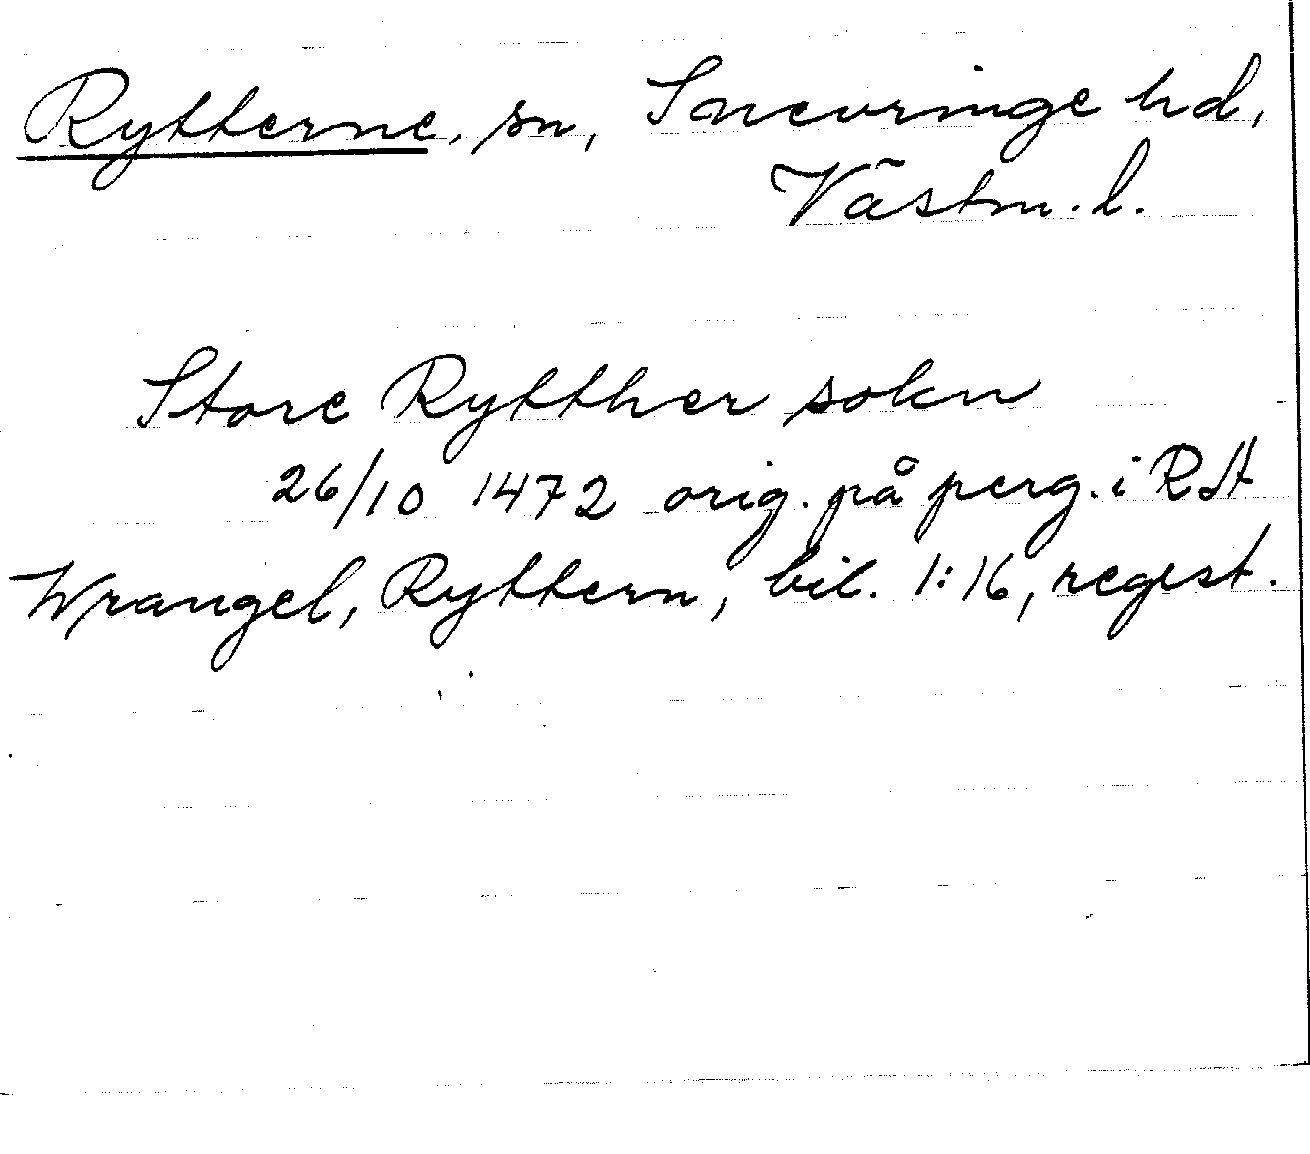 Rytterne, sn, Snevringe hd,
Västm. l.
Store Rytther sokn
26/10 1472 orig. på perg. i RA
Wrangel, Ryttern, bil. 1:16, regest.